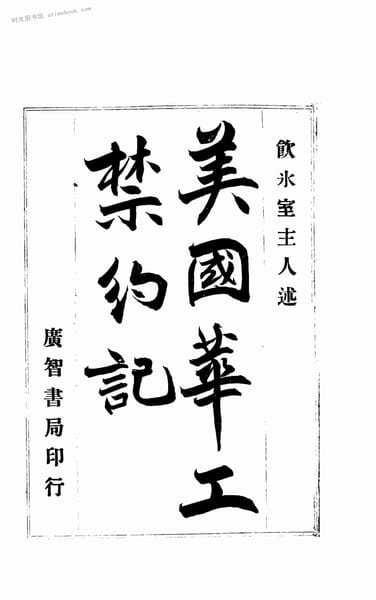 时光图书馆 atimebook.com
飲氷室主人述
美國華工
禁約記
廣智書局印行